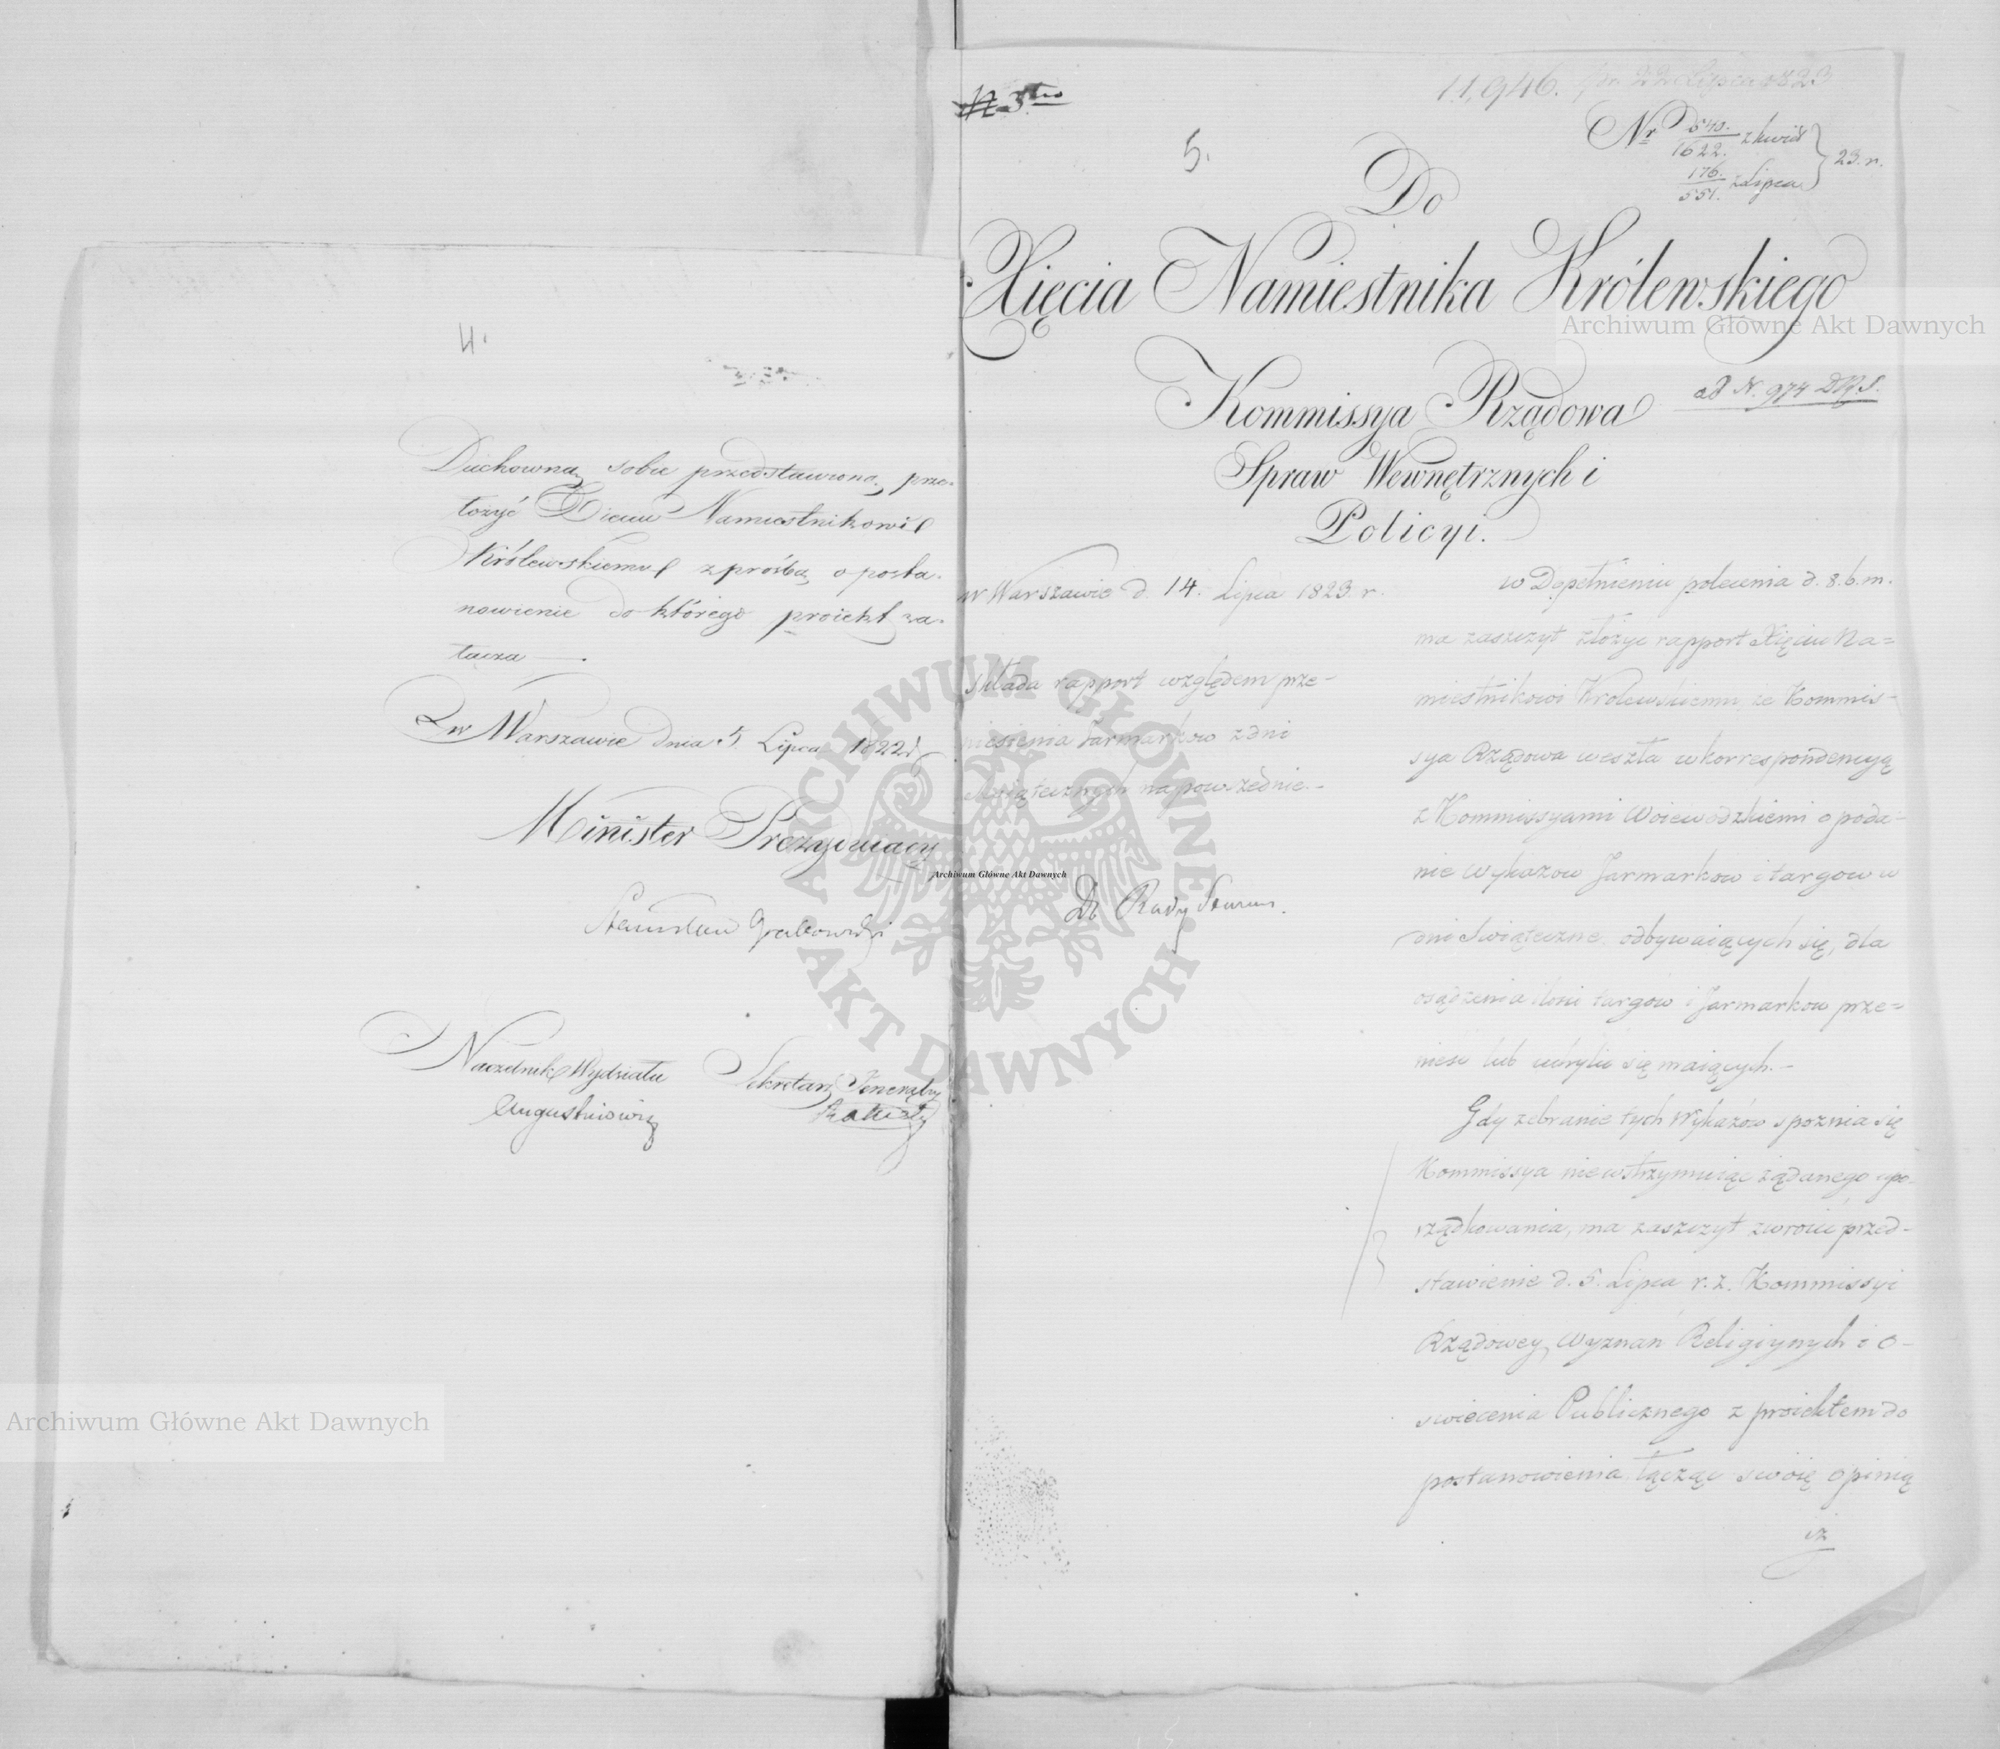 4.
Duchowną sobie przedstawioną, prze-
łożyć Xięciu Namiestnikowi
Królewskiemu z prośbą o posta-
nowienie do którego proiekt za-
łącza —.
w Warszawie dnia 5 Lipca 1822 r
Minister Prezyduiący
Stanisław Grabowski
Naczelnik Wydziału Sekretarz Jeneralny
Augustinowicz
N 3tio
11,946. pr. 22 Lipca 1823
5.
Nr 540./1622. z kwiet. 176./551. z Lipca } 23. r.
Do
Xięcia Namiestnika Królewskiego
Kommissya Rządowa
ad N. 974 D.R.S.
Spraw Wewnętrznych i
Policyi.
w Warszawie d. 14. Lipca 1823. r.
składa rapport względem prze-
niesienia Jarmarkow z dni
Swiątecznych na powszednie.-
Do Rady Stanu.
w Dopełnieniu polecenia d. 8. b. m.
ma zaszczyt złożyc rapport Xięciu Na=
miestnikowi Krolewskiemu, że Kommis-
sya Rządowa weszła w korrespondencyą
z Kommissyami Woiewodzkiemi o poda-
nie Wykazow Jarmarkow i targow w
dni Swiąteczne odbywaiących się, dla
osądzenia ilości targow i Jarmarkow prze=
niesc lub uchylic się maiących.-
Gdy zebranie tych Wykazów spoznia się
Kommissya niewstrzymuiąc żądanego upo-
rządkowania, ma zaszczyt zwrocic przed-
stawienie d. 5. Lipca r. z. Kommissyi
Rządowey Wyznan Religiynych i O-
swiecenia Publicznego z proiektem do
postanowienia łącząc swoię opinią
iż
Archiwum Główne Akt Dawnych
Archiwum Główne Akt Dawnych
Archiwum Główne Akt Dawnych
ARCHIWUM GŁÓWNE AKT DAWNYCH